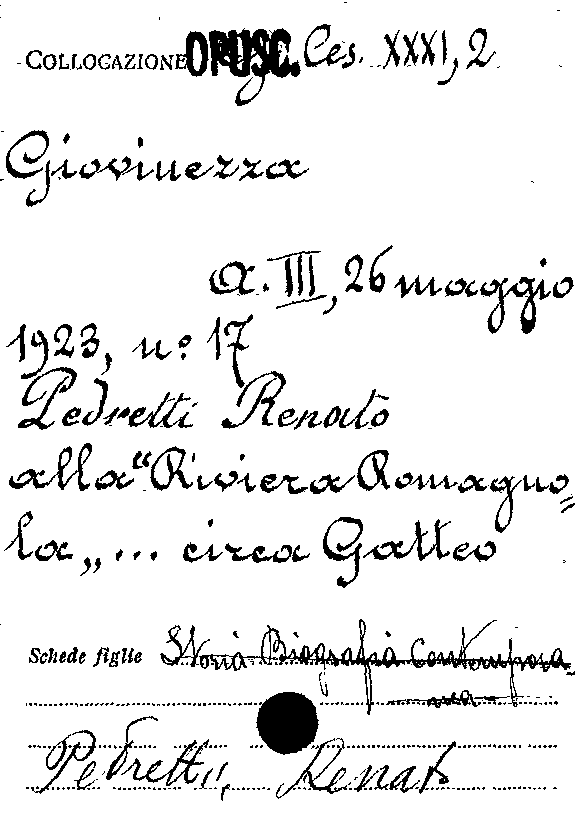 COLLOCAZIONE OPUSC. Ces. XXXI, 2
Giovinezza
a. III, 26 maggio
1923, n.º 17
Pedretti Renato
alla "Riviera Romagno=
la„... circa Gatteo
Schede figlie Storia Biografia Contempora-
nea
Pedretti, Renato